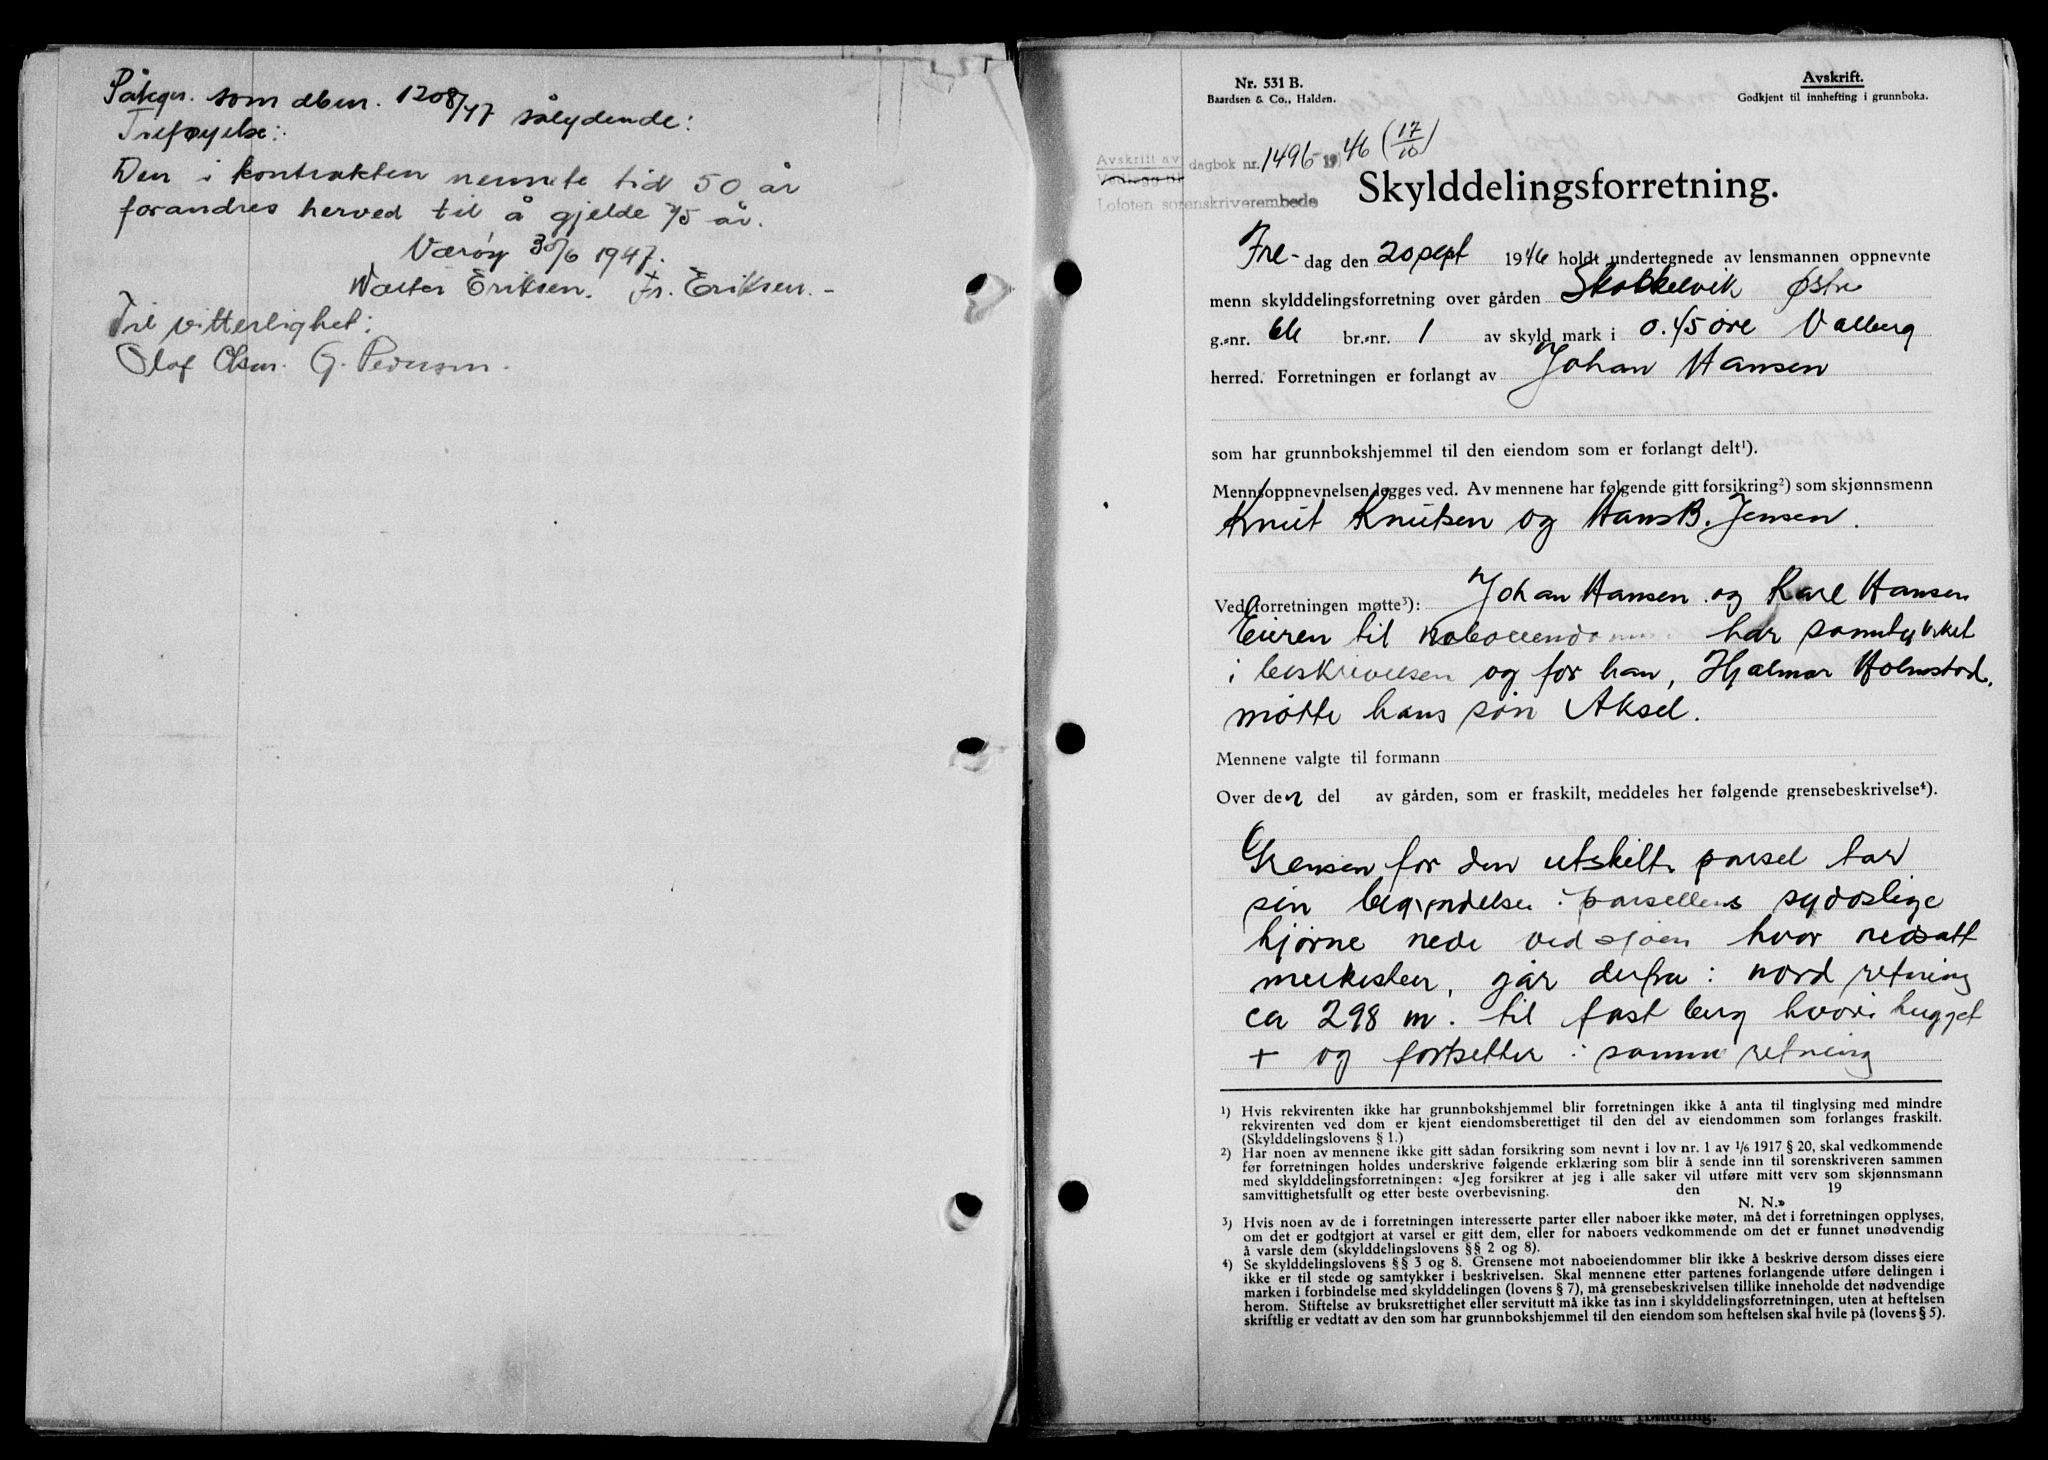 Påtegn. som dbnr. 1208/47 sålydende:
Treføyelse:
Den i kontrakten nevnte tid 50 år
forandres herved til å gjelde 75 år.
Værøy 30/6 1947.
Walter Eriksen. Fr. Eriksen.-
Til vitterlighet:
Olaf Olsen. G. Pedersen.
Nr. 531 B.
Baardsen & Co., Halden.
Avskrift.
Godkjent til innhefting i grunnboka.
Avskrift av
Vedlegg til
dagbok nr. 1496 - 1946 (17/10)
Lofoten sorenskriverembede
Skylddelingsforretning.
Fre- dag den 20 sept 1946 holdt undertegnede av lensmannen oppnevnte
menn skylddelingsforretning over gården Skokkelvik Østre
g.-nr. 66 br.-nr. 1 av skyld mark i 0.45 øre Valberg
herred. Forretningen er forlangt av Johan Hansen
som har grunnbokshjemmel til den eiendom som er forlangt delt¹).
Mennsoppnevnelsen legges ved. Av mennene har følgende gitt forsikring²) som skjønnsmenn
Knut Knutsen og Hans B. Jensen.
Ved forretningen møtte³): Johan Hansen og Karl Hansen
Eieren til naboeiendommen har samtykket
i beskrivelsen og for han, Hjalmar Holmstad,
møtte hans søn Aksel.
Mennene valgte til formann
Over den del av gården, som er fraskilt, meddeles her følgende grensebeskrivelse⁴).
Grensen for den utskilte parsel tar
sin begyndelse i parsellens sydøslige
hjørne nede ved sjøen hvor nedsatt
merkesten, går derfra i nord retning
ca 298 m. til fast berg hvori hugget
+ og fortsetter i samme retning
¹) Hvis rekvirenten ikke har grunnbokshjemmel blir forretningen ikke å anta til tinglysing med mindre
rekvirenten ved dom er kjent eiendomsberettiget til den del av eiendommen som forlanges fraskilt.
(Skylddelingslovens § 1.)
²) Har noen av mennene ikke gitt sådan forsikring som nevnt i lov nr. 1 av 1/6 1917 § 20, skal vedkommende
før forretningen holdes underskrive følgende erklæring som blir å sende inn til sorenskriveren sammen
med skylddelingsforretningen: «Jeg forsikrer at jeg i alle saker vil utføre mitt verv som skjønnsmann
samvittighetsfullt og etter beste overbevisning. den 19
N. N.»
³) Hvis noen av de i forretningen interesserte parter eller naboer ikke møter, må det i forretningen opplyses,
om det er godtgjort at varsel er gitt dem, eller for naboers vedkommende om det er funnet unødvendig
å varsle dem (skylddelingslovens §§ 2 og 8).
⁴) Se skylddelingslovens §§ 3 og 8. Grensene mot naboeiendommer blir ikke å beskrive dersom disses eiere
ikke er til stede og samtykker i beskrivelsen. Skal mennene etter partenes forlangende utføre delingen i
marken i forbindelse med skylddelingen (lovens § 7), må grensebeskrivelsen tillike inneholde det nødvendige
herom. Stiftelse av bruksrettighet eller servitutt må ikke tas inn i skylddelingsforretningen, uten at heftelsen
skriftlig er vedtatt av den som har grunnbokshjemmel til den eiendom som heftelsen skal hvile på (lovens § 5).